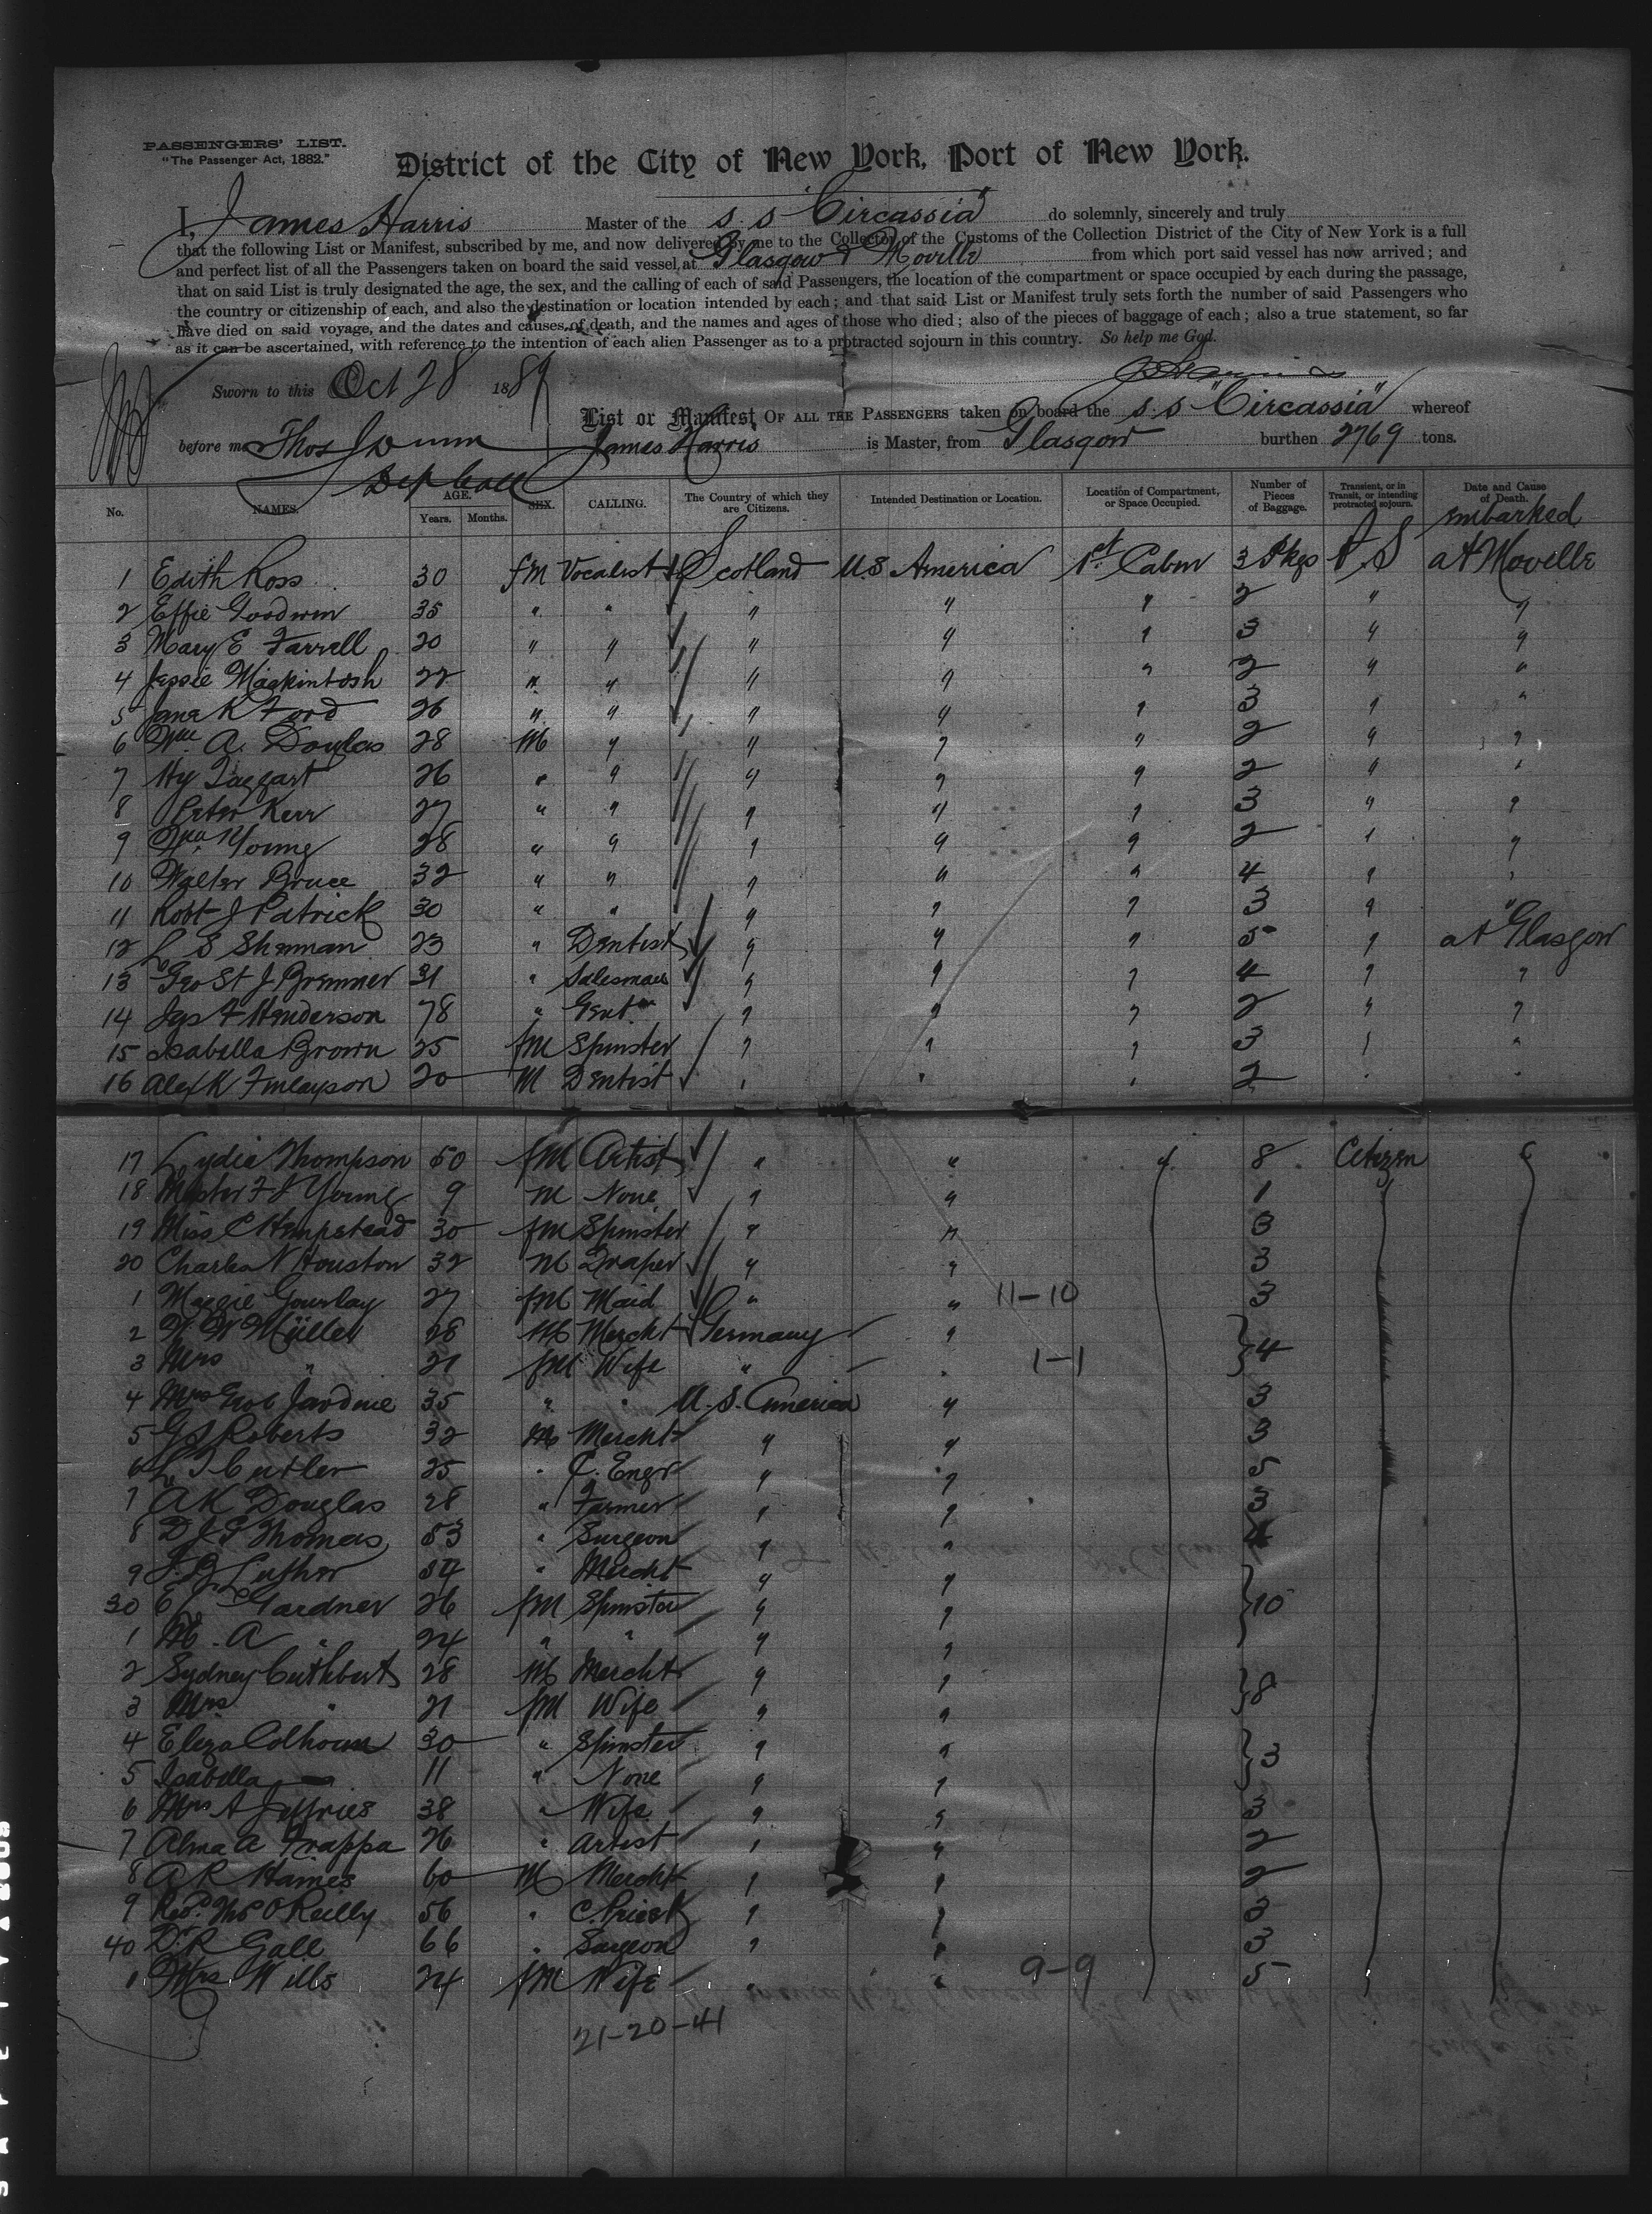 PASSENGERS' LIST.
"The Passenger Act, 1882."
District of the City of New York, Port of New York.
I, James Harris Master of the s.s "Circassia" do solemnly, sincerely and truly
that the following List or Manifest, subscribed by me, and now delivered by me to the Collector of the Customs of the Collection District of the City of New York is a full
and perfect list of all the Passengers taken on board the said vessel, at Glasgow & Moville from which port said vessel has now arrived; and
that on said List is truly designated the age, the sex, and the calling of each of said Passengers, the location of the compartment or space occupied by each during the passage,
the country or citizenship of each, and also the destination or location intended by each; and that said List or Manifest truly sets forth the number of said Passengers who
have died on said voyage, and the dates and causes of death, and the names and ages of those who died; also of the pieces of baggage of each; also a true statement, so far
as it can be ascertained, with reference to the intention of each alien Passenger as to a protracted sojourn in this country. So help me God.
Sworn to this Oct 28 1889
List or Manifest OF ALL THE PASSENGERS taken on board the s.s "Circassia" whereof
before me Thos Dunn James Harris is Master, from Glasgow burthen 2769 tons.
Dep Coll
No. NAMES. AGE. Years. Months. SEX. CALLING. The Country of which they are Citizens. Intended Destination or Location. Location of Compartment, or Space Occupied. Number of Pieces of Baggage. Transient, or in Transit, or intending protracted sojourn. Date and Cause of Death.
embarked
1 Edith Ross 30 fM Vocalist Scotland U.S America 1st Cabin 3 Pkgs P.S at Moville
2 Effie Goodwin 35 " " " " " 2 " "
3 Mary E Farrell 20 " " " " " 3 " "
4 Jessie Mackintosh 22 " " " " " 2 " "
5 Jane K Ford 26 " " " " " 3 " "
6 Wm A. Douglas 28 M " " " " 2 " "
7 Hy Taggart 26 " " " " " 2 " "
8 Peter Kerr 27 " " " " " 3 " "
9 Wm Young 28 " " " " " 2 " "
10 Walter Bruce 32 " " " " " 4 " "
11 Robt J Patrick 30 " " " " " 3 " "
12 L S Shenman 23 " Dentist " " " 5 " at Glasgow
13 Geo St J Bremner 31 " Salesman " " " 4 " "
14 Jas F Henderson 78 " Gent " " " 2 " "
15 Isabella Brown 25 fM Spinster " " " 3 " "
16 Alex K Finlayson 20 M Dentist " " " 2 " "
17 Lydia Thompson 50 fM Artist " " " 8 Citizen "
18 Master F J Young 9 M None " " 1
19 Miss C Hempstead 30 fM Spinster " " 3
20 Charles N Houston 32 M Draper " " 3
1 Maggie Gourlay 27 fM Maid " " 11-10 3
2 W. W Müller 28 M Mercht Germany " 4
3 Mrs " 21 fM Wife " " 1-1
4 Mrs Geo Jardine 35 " " U.S. America " 3
5 G S Roberts 32 M Mercht " " 3
6 L T Cutler 25 " C. Engr " " 5
7 A K Douglas 28 " Farmer " " 3
8 D J P Thomas 53 " Surgeon " " 4
9 J. B Luther 54 " Mercht " "
30 E J Gardner 26 fM Spinster " " 10
1 M. A " 24 " " " "
2 Sydney Cuthbert 28 M Mercht " " 8
3 Mrs " 21 fM Wife " "
4 Eliza Colhoun 30 " Spinster " " 3
5 Isabella 11 " None " "
6 Mrs A Jeffries 38 " Wife " " 3
7 Alma A Frappa 26 " Artist " " 2
8 A R Haines 60 M Mercht " " 2
9 Revd. Ths O'Reilly 56 " C. Priest " " 3
40 Dr. R Gall 66 " Surgeon " " 3
1 Mrs. Wills 24 fM Wife " " 9-9 5
21-20-41